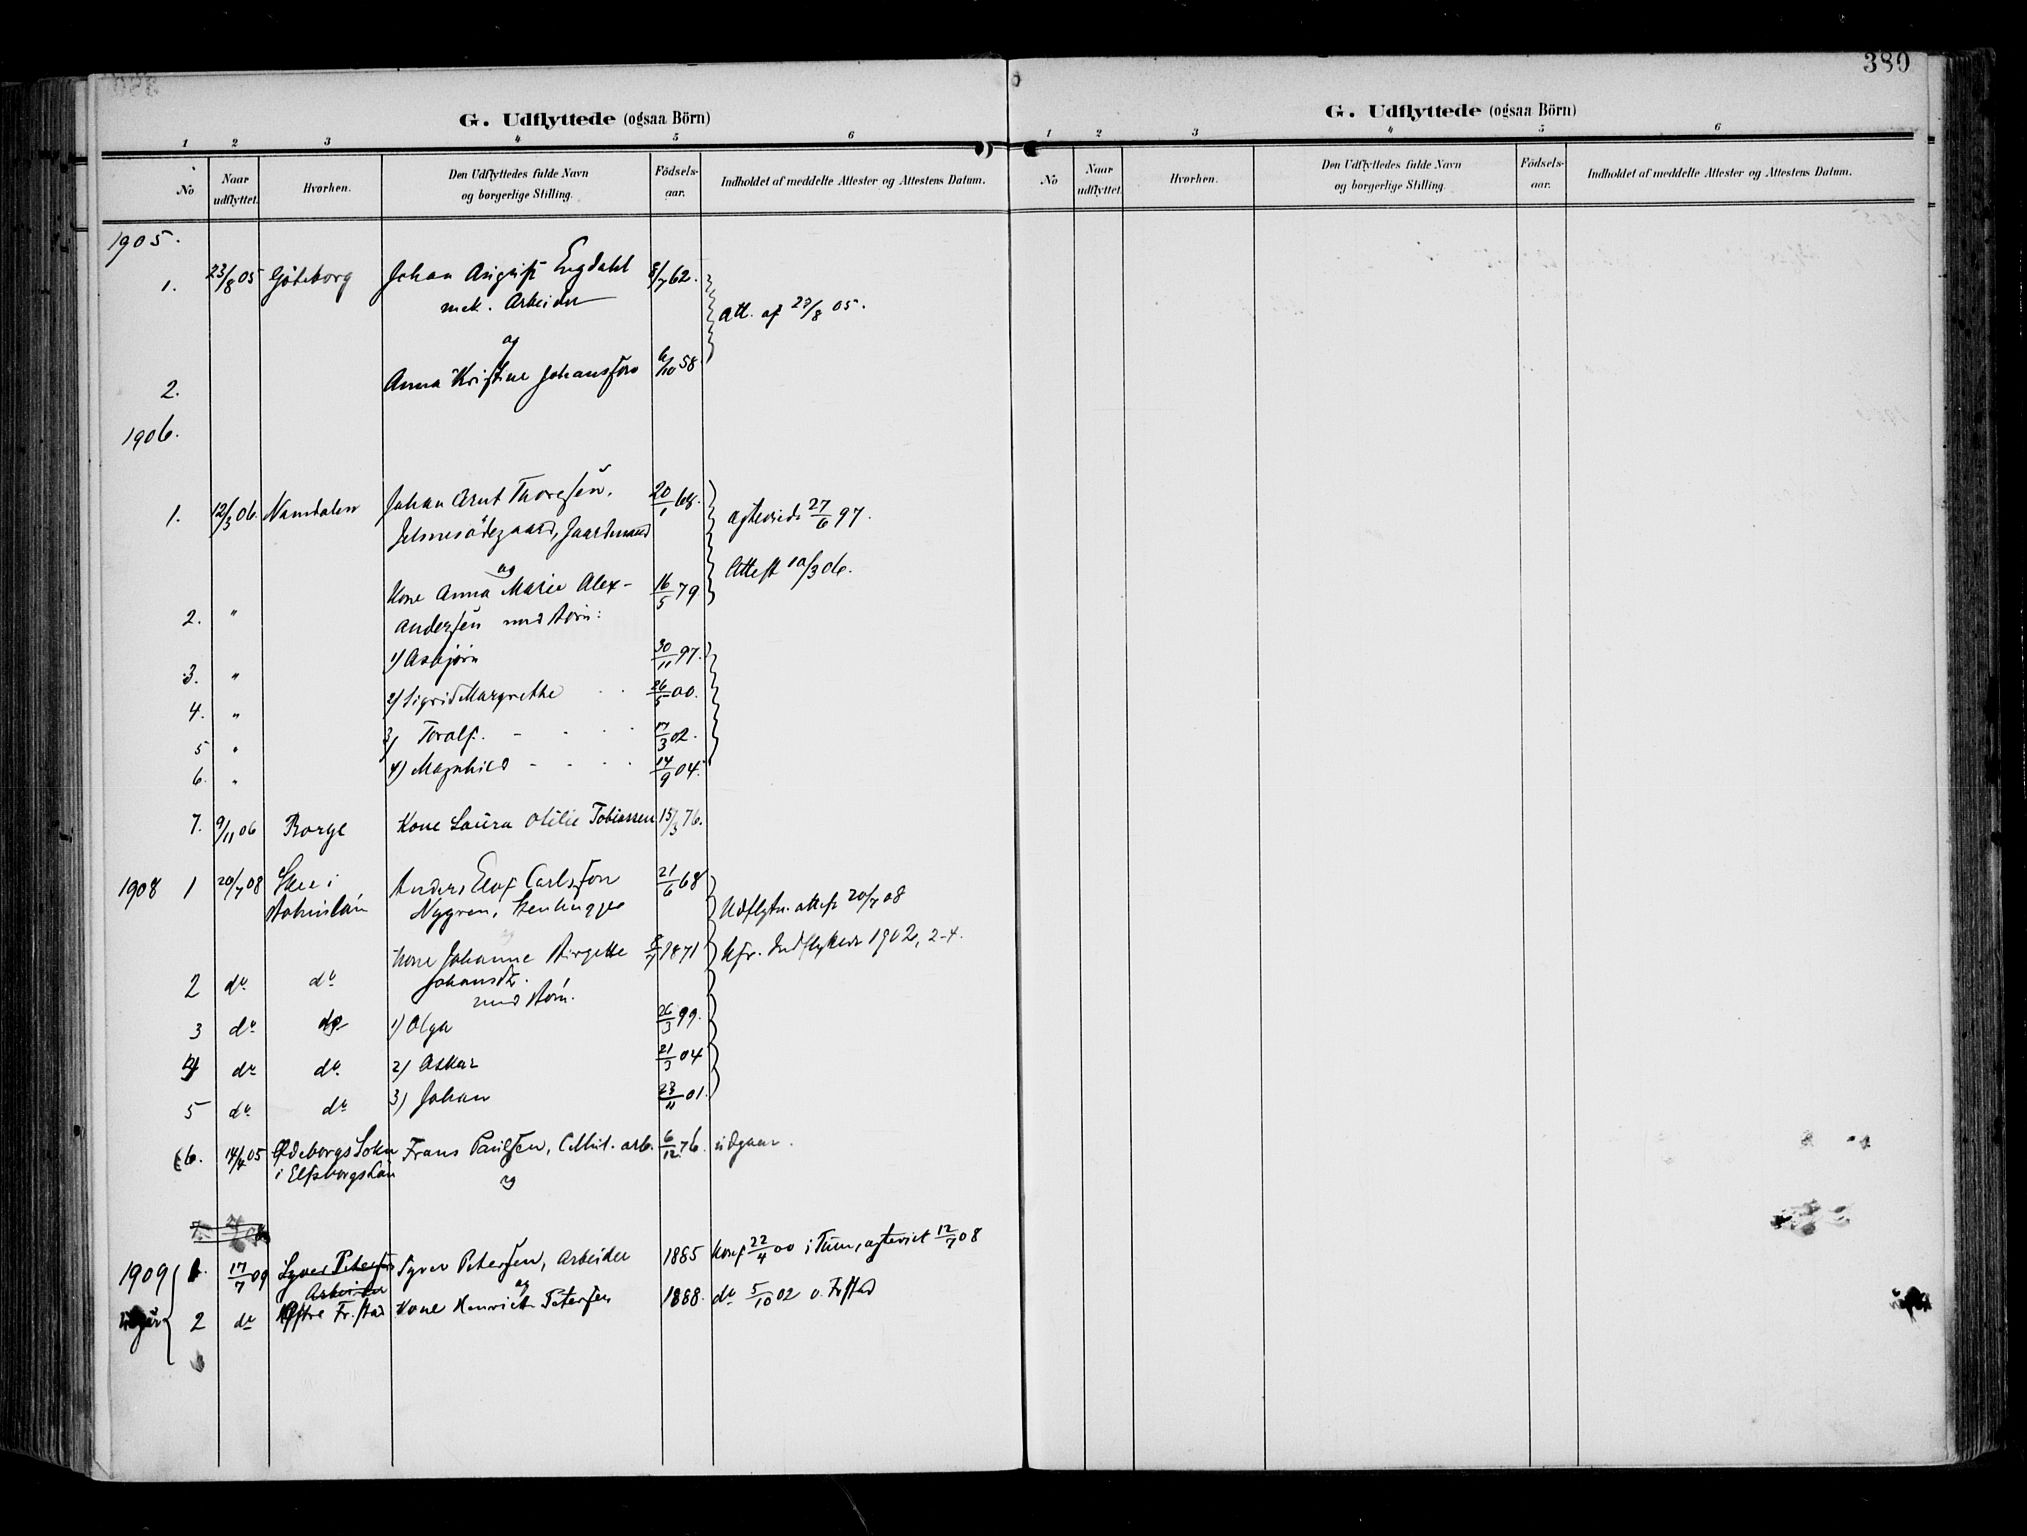 380
G. Udflyttede (ogsaa Börn)
1 2 3 4 5 6
No
Naar udflyttet.
Hvorhen.
Den Udflyttedes fulde Navn og borgerlige Stilling.
Födsels-aar.
Indholdet af meddelte Attester og Attestens Datum.
1905.
1. 23/8 05 Göteborg Johan August Engdahl 8/7 62.
mek. Arbeider
Att. af 23/8 05.
og
2. Anna Kristine Johansson 6/10 58
1906.
1. 12/3 06. Namdalen Johan Arnt Thoresen, 20/1 68.
Gaardmand
agtevied 27/6 97.
og
Attest 10/3 06.
2. " Kone Anna Marie Alex- 16/5 79
andersen med Børn:
3. " 1) Asbjørn 30/11 97.
4. " 2) Sigrid Margrethe 26/5 00.
5 " 3) Toralf. 17/3 02.
6. " 4) Magnhild 14/9 04.
7. 9/11 06 Borge Kone Laura Otilie Tobiassen 15/3 76.
1908 1 20/7 08 Skee i Anders Elof Carlsson 21/6 68
Bohuslän Nygren, Stenhugger
Udflytn. attest 20/7 08
2 do do Kone Johanne Birgitte 8/7 1871
Johansdtr.
cfr. Indflyttede 1902, 2-4.
med Børn.
3 do do 1) Olga 26/3 99.
4 do do 2) Oskar 21/3 04
5 do do 3) Johan 23/11 01.
(6. 14/4 05 Ødeborgs Sokn Frans Paulsen, Cellul. arb. 6/12 76. udgaar.
i Elfsborgs Län og
1909 1. 17/7 09 Syver Petersen Syver Petersen, Arbeider 1885 Konf 22/4 00 i Tune, agteviet 12/7 08
Arbeider og
2 do Østre Fr.stad Kone Henriette Petersen 1888. do 5/10 02 v. Fr.stad
G. Udflyttede (ogsaa Börn)
1 2 3 4 5 6
No
Naar udflyttet.
Hvorhen.
Den Udflyttedes fulde Navn og borgerlige Stilling.
Födsels-aar.
Indholdet af meddelte Attester og Attestens Datum.